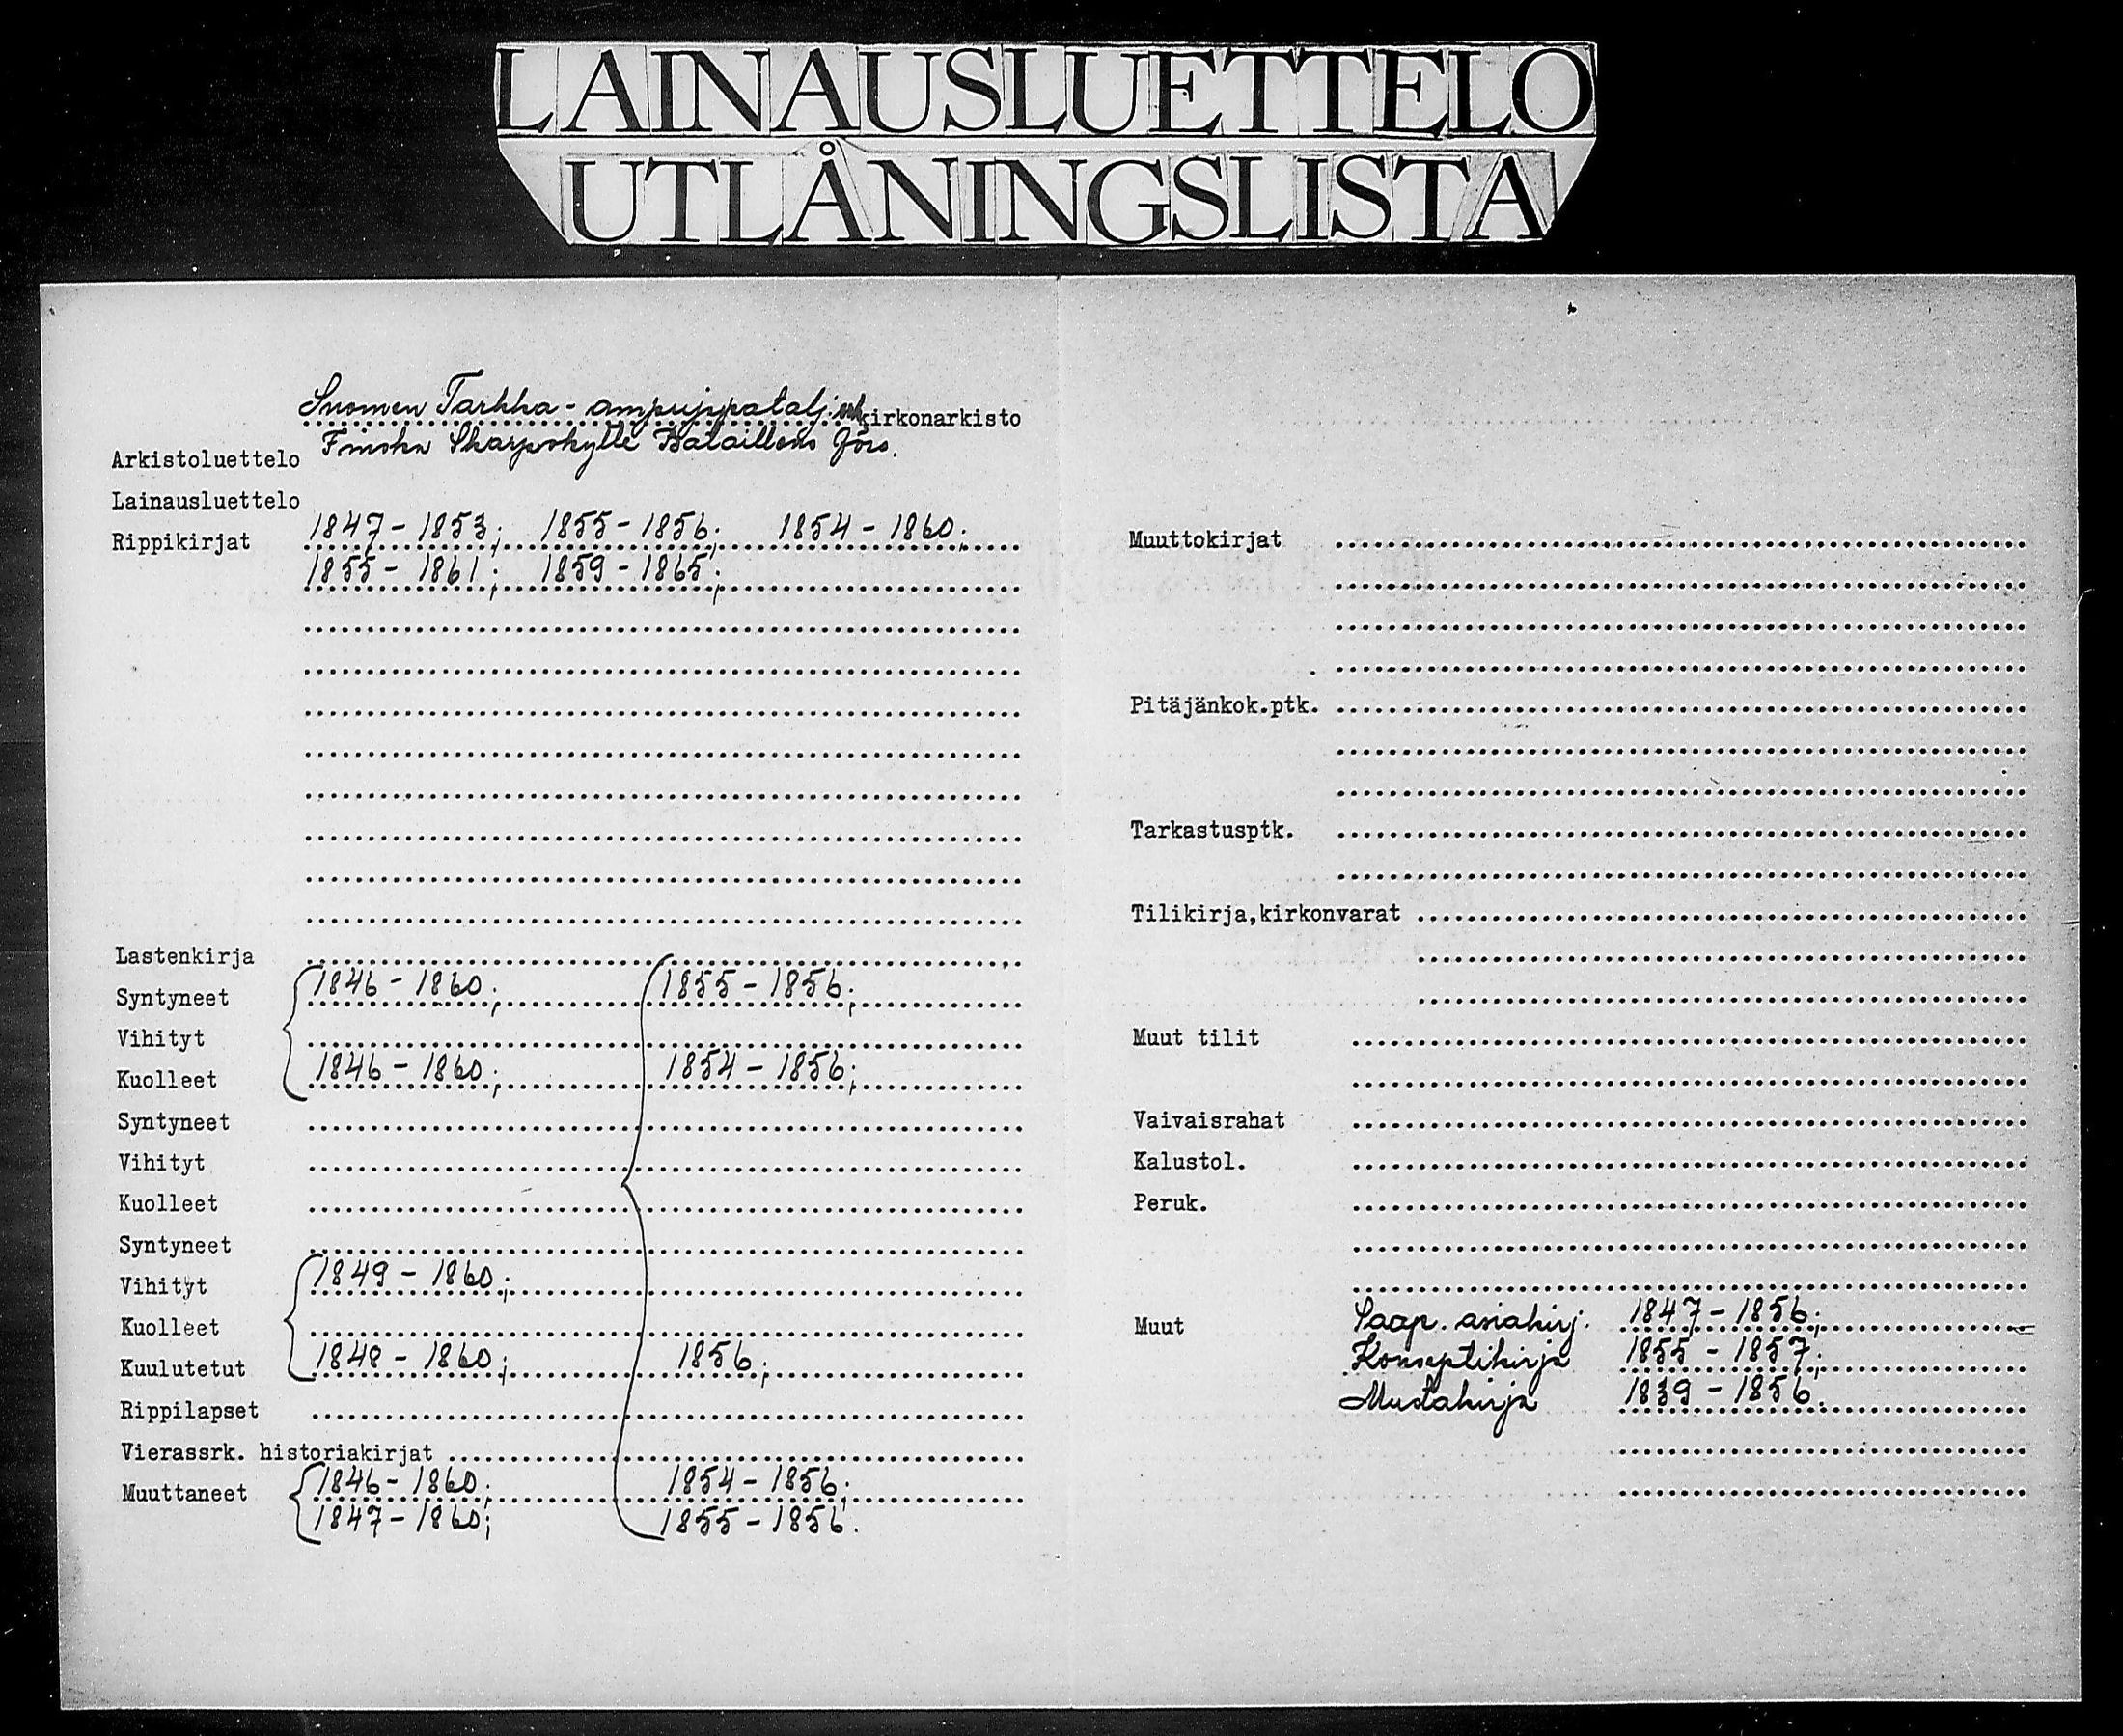 LAINAUSLUETTELO
UTLÅNINGSLISTA
Suomen Tarkka-ampujapatalj. srk kirkonarkisto
Finska Skarpskytte Bataillons förs.
Arkistoluettelo
Lainausluettelo
Rippikirjat 1847-1853; 1855-1856; 1854-1860;
1855-1861; 1859-1865;
Lastenkirja
Syntyneet 1846-1860; 1855-1856;
Vihityt
Kuolleet 1846-1860; 1854-1856;
Syntyneet
Vihityt
Kuolleet
Syntyneet
Vihityt 1849-1860;
Kuolleet
Kuulutetut 1848-1860; 1856;
Rippilapset
Vierassrk. historiakirjat
Muuttaneet 1846-1860; 1854-1856;
1847-1860; 1855-1856.
Muuttokirjat
Pitäjänkok.ptk.
Tarkastusptk.
Tilikirja,kirkonvarat
Muut tilit
Vaivaisrahat
Kalustol.
Peruk.
Muut Saap. asiakirj. 1847-1856;
Konseptikirja 1855-1857;
Mustakirja 1839-1856.